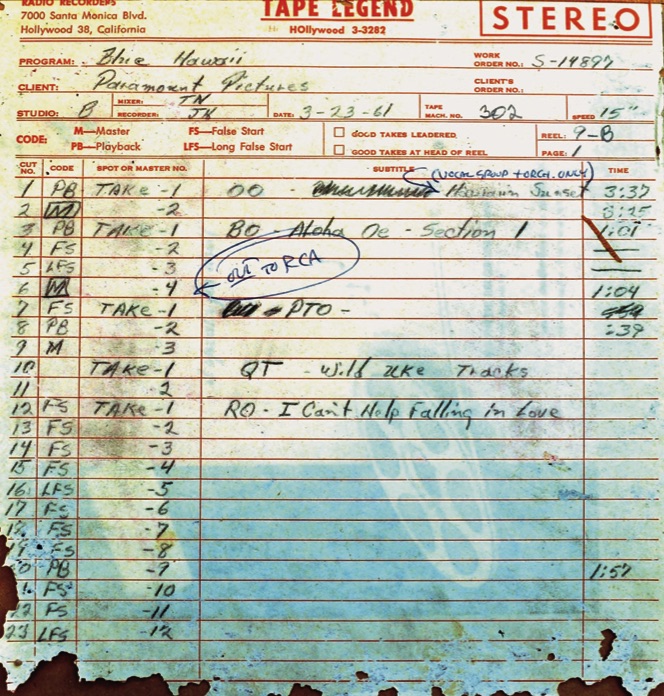 RADIO RECORDERS
7000 Santa Monica Blvd.
Hollywood 38, California
TAPE LEGEND
HOllywood 3-3282
STEREO
PROGRAM: Blue Hawaii WORK ORDER NO.: S-14897
CLIENT: Paramount Pictures CLIENT'S ORDER NO.:
STUDIO: B MIXER: TN RECORDER: JK DATE: 3-23-61 TAPE MACH. NO. 302 SPEED 15"
CODE: M—Master FS—False Start GOLD TAKES LEADERED, REEL: 9-B
PB—Playback LFS—Long False Start GOOD TAKES AT HEAD OF REEL PAGE: 1
CUT NO. CODE SPOT OR MASTER NO. SUBTITLE TIME
(VOCAL GROUP + ORCH. ONLY)
1 PB TAKE -1 OO - Hawaiian Sunset 3:37
2 M -2 3:25
3 PB TAKE -1 BO - Aloha Oe - Section 1 1:01
4 FS -2
5 LFS -3 OUT TO RCA
6 M -4 1:04
7 FS TAKE -1 - PTO -
8 PB -2 :39
9 M -3
10 TAKE -1 QT - Wild Uke Tracks
11 2
12 FS TAKE -1 RO - I Can't Help Falling in Love
13 FS -2
14 FS -3
15 FS -4
16 LFS -5
17 FS -6
FS -7
FS -8
PB -9 1:57
FS -10
FS -11
23 LFS -12